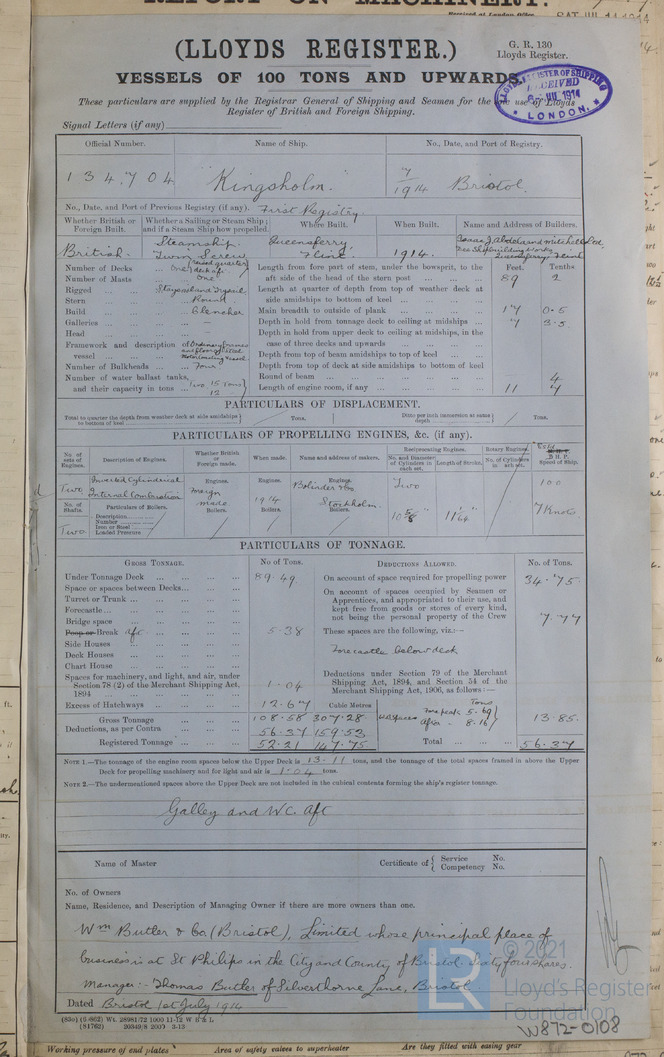 REPORT ON MACHINERY.
Received at London Office SAT. JUL 11 1914
(LLOYDS REGISTER.)
G. R. 130
Lloyds Register.
VESSELS OF 100 TONS AND UPWARDS.
LLOYD'S REGISTER OF SHIPPING RECEIVED JUL 1914 LONDON.
These particulars are supplied by the Registrar General of Shipping and Seamen for the use of Lloyds
Register of British and Foreign Shipping.
Signal Letters (if any)
Official Number. Name of Ship. No., Date, and Port of Registry.
134,704 "Kingsholm." 7/1914 Bristol.
No., Date, and Port of Previous Registry (if any). First Registry
Whether British or Foreign Built. Whether a Sailing or Steam Ship; and if a Steam Ship how propelled. Where Built. When Built. Name and Address of Builders.
British. Steamship Twin Screw Queensferry, Flint 1914. Isaac J. Abdela and Mitchell Queensferry Flint
Number of Decks ... One & raised quarter deck aft
Number of Masts ... One
Rigged ... 
Stern ... Round
Build ... Clencher
Galleries ... —
Head ... —
Framework and description of vessel ... Ordinary frames
Number of Bulkheads ... Four
Number of water ballast tanks, and their capacity in tons ... Two 15 Tons 12
Feet. Tenths
Length from fore part of stem, under the bowsprit, to the aft side of the head of the stern post ... 89 2
Length at quarter of depth from top of weather deck at side amidships to bottom of keel ...
Main breadth to outside of plank ... 17 0.5
Depth in hold from tonnage deck to ceiling at midships ... 7 3.5
Depth in hold from upper deck to ceiling at midships, in the case of three decks and upwards ...
Depth from top of beam amidships to top of keel ...
Depth from top of deck at side amidships to bottom of keel
Round of beam ... 4
Length of engine room, if any ... 11 4
PARTICULARS OF DISPLACEMENT.
Total to quarter the depth from weather deck at side amidships to bottom of keel Tons. Ditto per inch immersion at same depth Tons.
PARTICULARS OF PROPELLING ENGINES, &c. (if any).
No. of sets of Engines. Description of Engines. Whether British or Foreign made. When made. Name and address of makers. Reciprocating Engines. No. and Diameter of Cylinders in each set. Length of Stroke. Rotary Engines. No. of Cylinders in each set. B.H.P. Speed of Ship.
Two Inverted Cylindrical Internal Combustion Engines. Foreign made Engines. 1914 Engines. Bolinders Stockholm. Two 10 5/8" 100 7 Knots
No. of Shafts. Particulars of Boilers. Boilers. Boilers. Boilers.
Two Description
Number
Iron or Steel
Loaded Pressure
PARTICULARS OF TONNAGE.
GROSS TONNAGE. No of Tons. DEDUCTIONS ALLOWED. No. of Tons.
Under Tonnage Deck ... 89.49
Space or spaces between Decks...
Turret or Trunk ...
Forecastle ...
Bridge space
Poop or Break aft. ... 5.38
Side Houses
Deck Houses
Chart House
Spaces for machinery, and light, and air, under Section 78 (2) of the Merchant Shipping Act, 1894 ... 1.04
Excess of Hatchways ... 12.67 Cubic Metres
Gross Tonnage 108.58 307.28
Deductions, as per Contra 56.37 159.53
Registered Tonnage 52.21 147.75
On account of space required for propelling power 34.75
On account of spaces occupied by Seamen or Apprentices, and appropriated to their use, and kept free from goods or stores of every kind, not being the personal property of the Crew 7.77
These spaces are the following, viz.:—
Forecastle below deck
Deductions under Section 79 of the Merchant Shipping Act, 1894, and Section 54 of the Merchant Shipping Act, 1906, as follows:—
Tons
Forepeak 5.69
After - 8.16 13.85.
Total ... 56.37
NOTE 1.—The tonnage of the engine room spaces below the Upper Deck is 13.11 tons, and the tonnage of the total spaces framed in above the Upper
Deck for propelling machinery and for light and air is 1.04 tons.
NOTE 2.—The undermentioned spaces above the Upper Deck are not included in the cubical contents forming the ship's register tonnage.
Galley and W.C. Aft
Name of Master Certificate of { Service No. Competency No.
No. of Owners
Name, Residence, and Description of Managing Owner if there are more owners than one.
Wm Butler & Co. (Bristol), Limited whose principal place of
business is at St Philips in the City and County of Bristol. Sixty four shares.
Manager:- Thomas Butler of Silverthorne Lane, Bristol.
Dated Bristol 1st July 1914
© 2021
Lloyd's Register
Foundation
LR
W872-0108
Working pressure of end plates Area of safety valves to superheater Are they fitted with easing gear